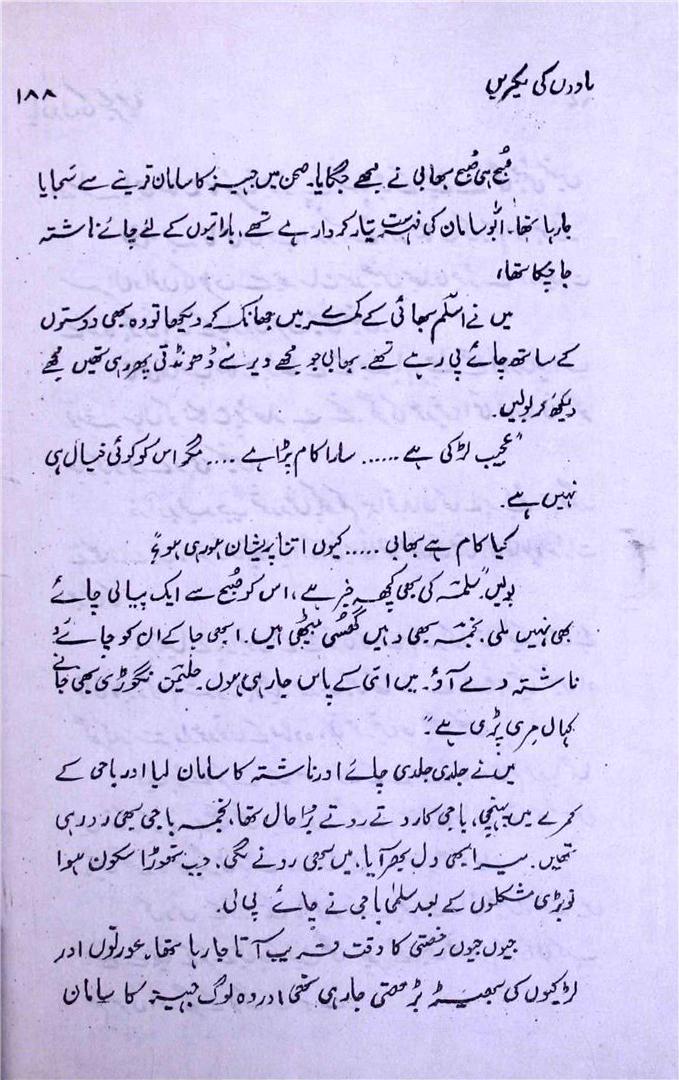 یادوں کی لکیریں
۱۸۸
صُبح ہی صُبح بھابی نے مجھے جگایا۔ صحن میں جہیز کا سامان قرینے سے سجایا
جا رہا تھا۔ ابّو سامان کی فہرست تیار کروا رہے تھے، باراتیوں کے لئے چائے ناشتہ
جا چکا تھا،
میں نے اسلم بھائی کے کمرے میں جھانک کر دیکھا تو وہ بھی دوستوں
کے ساتھ چائے پی رہے تھے۔ بھابی جو مجھے دیر سے ڈھونڈتی پھر رہی تھیں مجھے
دیکھ کر بولیں۔
"عجیب لڑکی ہے ...... سارا کام پڑا ہے .... مگر اس کو کوئی خیال ہی
نہیں ہے۔
کیا کام ہے بھابی ..... کیوں اتنا پریشان ہو رہی ہو؟"
بولیں "سلمہ کی بھی کچھ خبر ہے، اس کو صُبح سے ایک پیالی چائے
بھی نہیں ملی۔ نجمہ بھی وہیں گھُسی بیٹھی ہیں۔ ابھی جا کے ان کو چائے و
ناشتہ دے آؤ۔ میں امّی کے پاس جا رہی ہوں۔ حلیمن نگوڑی بھی جانے
کہاں مری پڑی ہے۔"
میں نے جلدی جلدی چائے اور ناشتہ کا سامان لیا اور باجی کے
کمرے میں پہنچی، باجی کا روتے روتے بُرا حال تھا، نجمہ باجی بھی رو رہی
تھیں۔ میرا بھی دل بھر آیا، میں بھی رونے لگی۔ جب تھوڑا سکون ہوا
تو بڑی مشکلوں کے بعد سلمٰی باجی نے چائے پی لی۔
جیوں جیوں رخصتی کا وقت قریب آتا جا رہا تھا، عورتوں اور
لڑکیوں کی بھیڑ بڑھتی جا رہی تھی اور وہ لوگ جہیز کا سامان